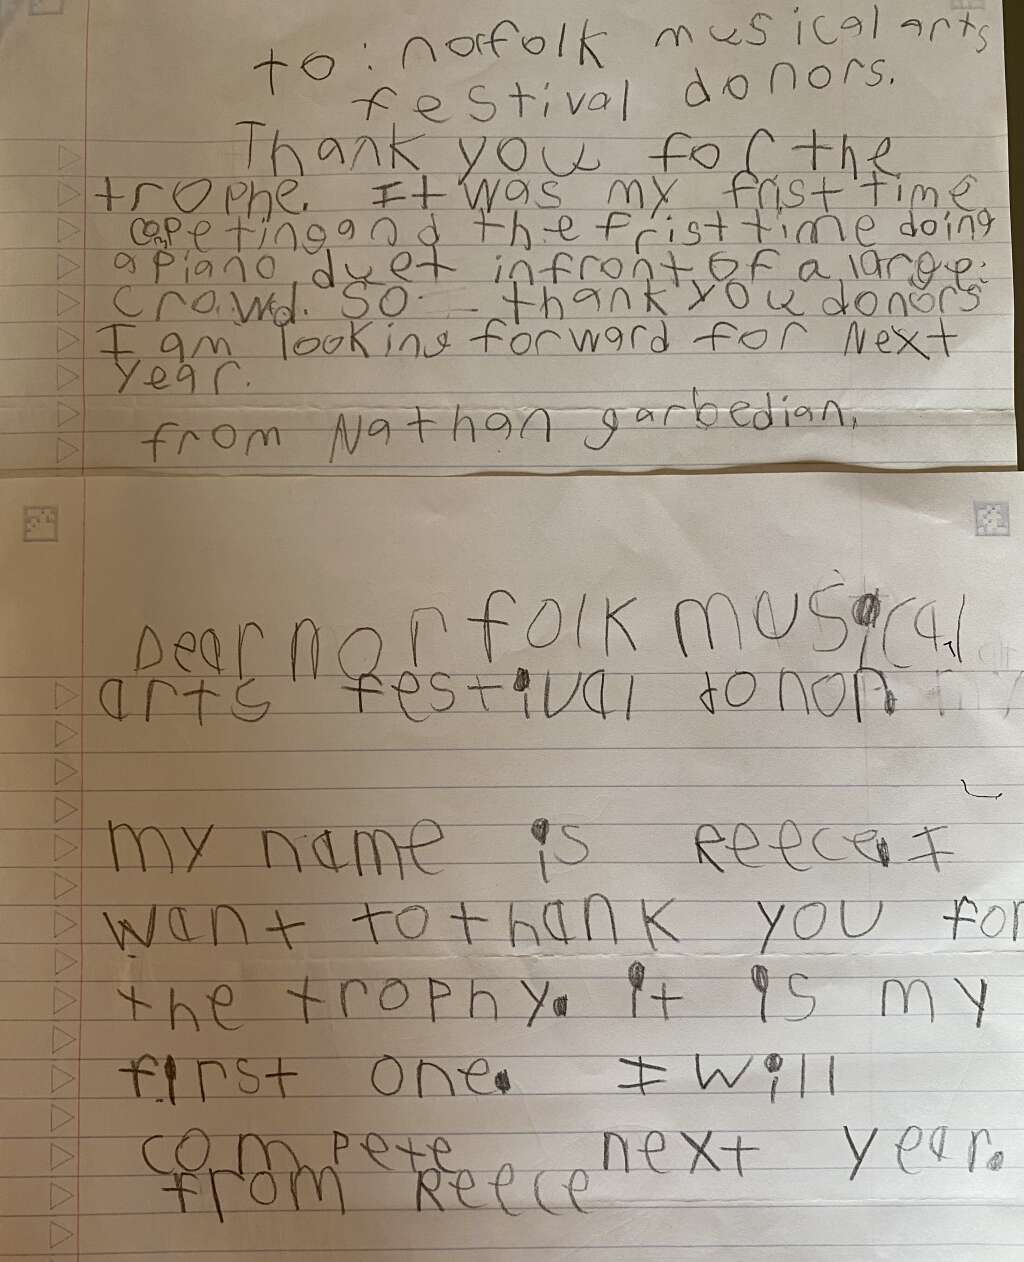 to: norfolk musical arts
festival donors.
Thank you for the
trophe. It was my frist time
competing and the frist time doing
a piano duet infront of a large
crowd. So thank you donors
I am looking forward for Next
year.
from Nathan garbedian,
Dear norfolk musical
arts festival donor
my name is Reece. I
want to thank you for
the trophy. it is my
first one. I will
compete next year.
from Reece